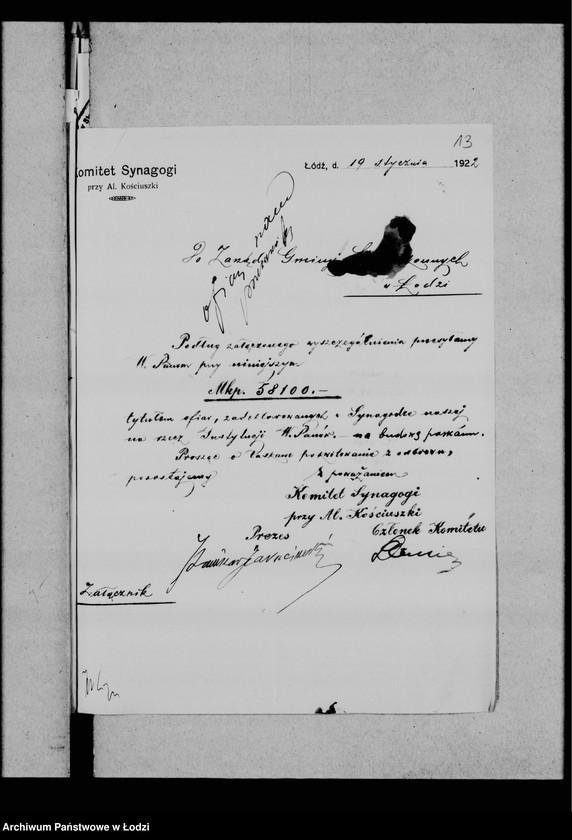 13
Komitet Synagogi
przy Al. Kościuszki
Łódź, d. 19 stycznia 1922
Do Zarządu Gminy
w Łodzi
Podług załączonego wyszczególnienia przesyłamy
W. Panom przy niniejszym
Mkp. 58100.-
tytułem ofiar, zadeklarowanych w Synagodze naszej
na rzecz Instytucji W. Panów. — na budowę parkanu.
Prosząc o łaskawe pokwitowanie z odbioru,
pozostajemy
Z poważaniem
Komitet Synagogi
przy Al. Kościuszki
Prezes
Członek Komitetu
Załącznik
Archiwum Państwowe w Łodzi